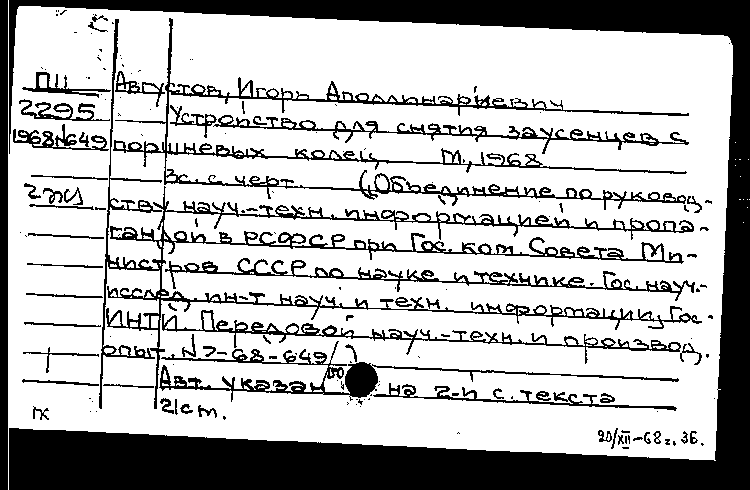 ПII Августов, Игорь Аполлинариевич
2295 Устройство для снятия заусенцев с
1968№649 поршневых колец. М., 1968
3с. с черт. (Объединение по руковод-
ству науч.-техн. информацией и пропа-
гандой в РСФСР при Гос. ком. Совета Ми-
нистров СССР по науке и технике. Гос. науч.-
исслед. ин-т науч. и техн. информации. Гос.
ИНТИ. Передовой науч.-техн. и производ.
опыт. №7-68-649/ )
Авт. указан на 2-й с. текста
2/ст.
ГК
20/XII-68г. ЗБ.